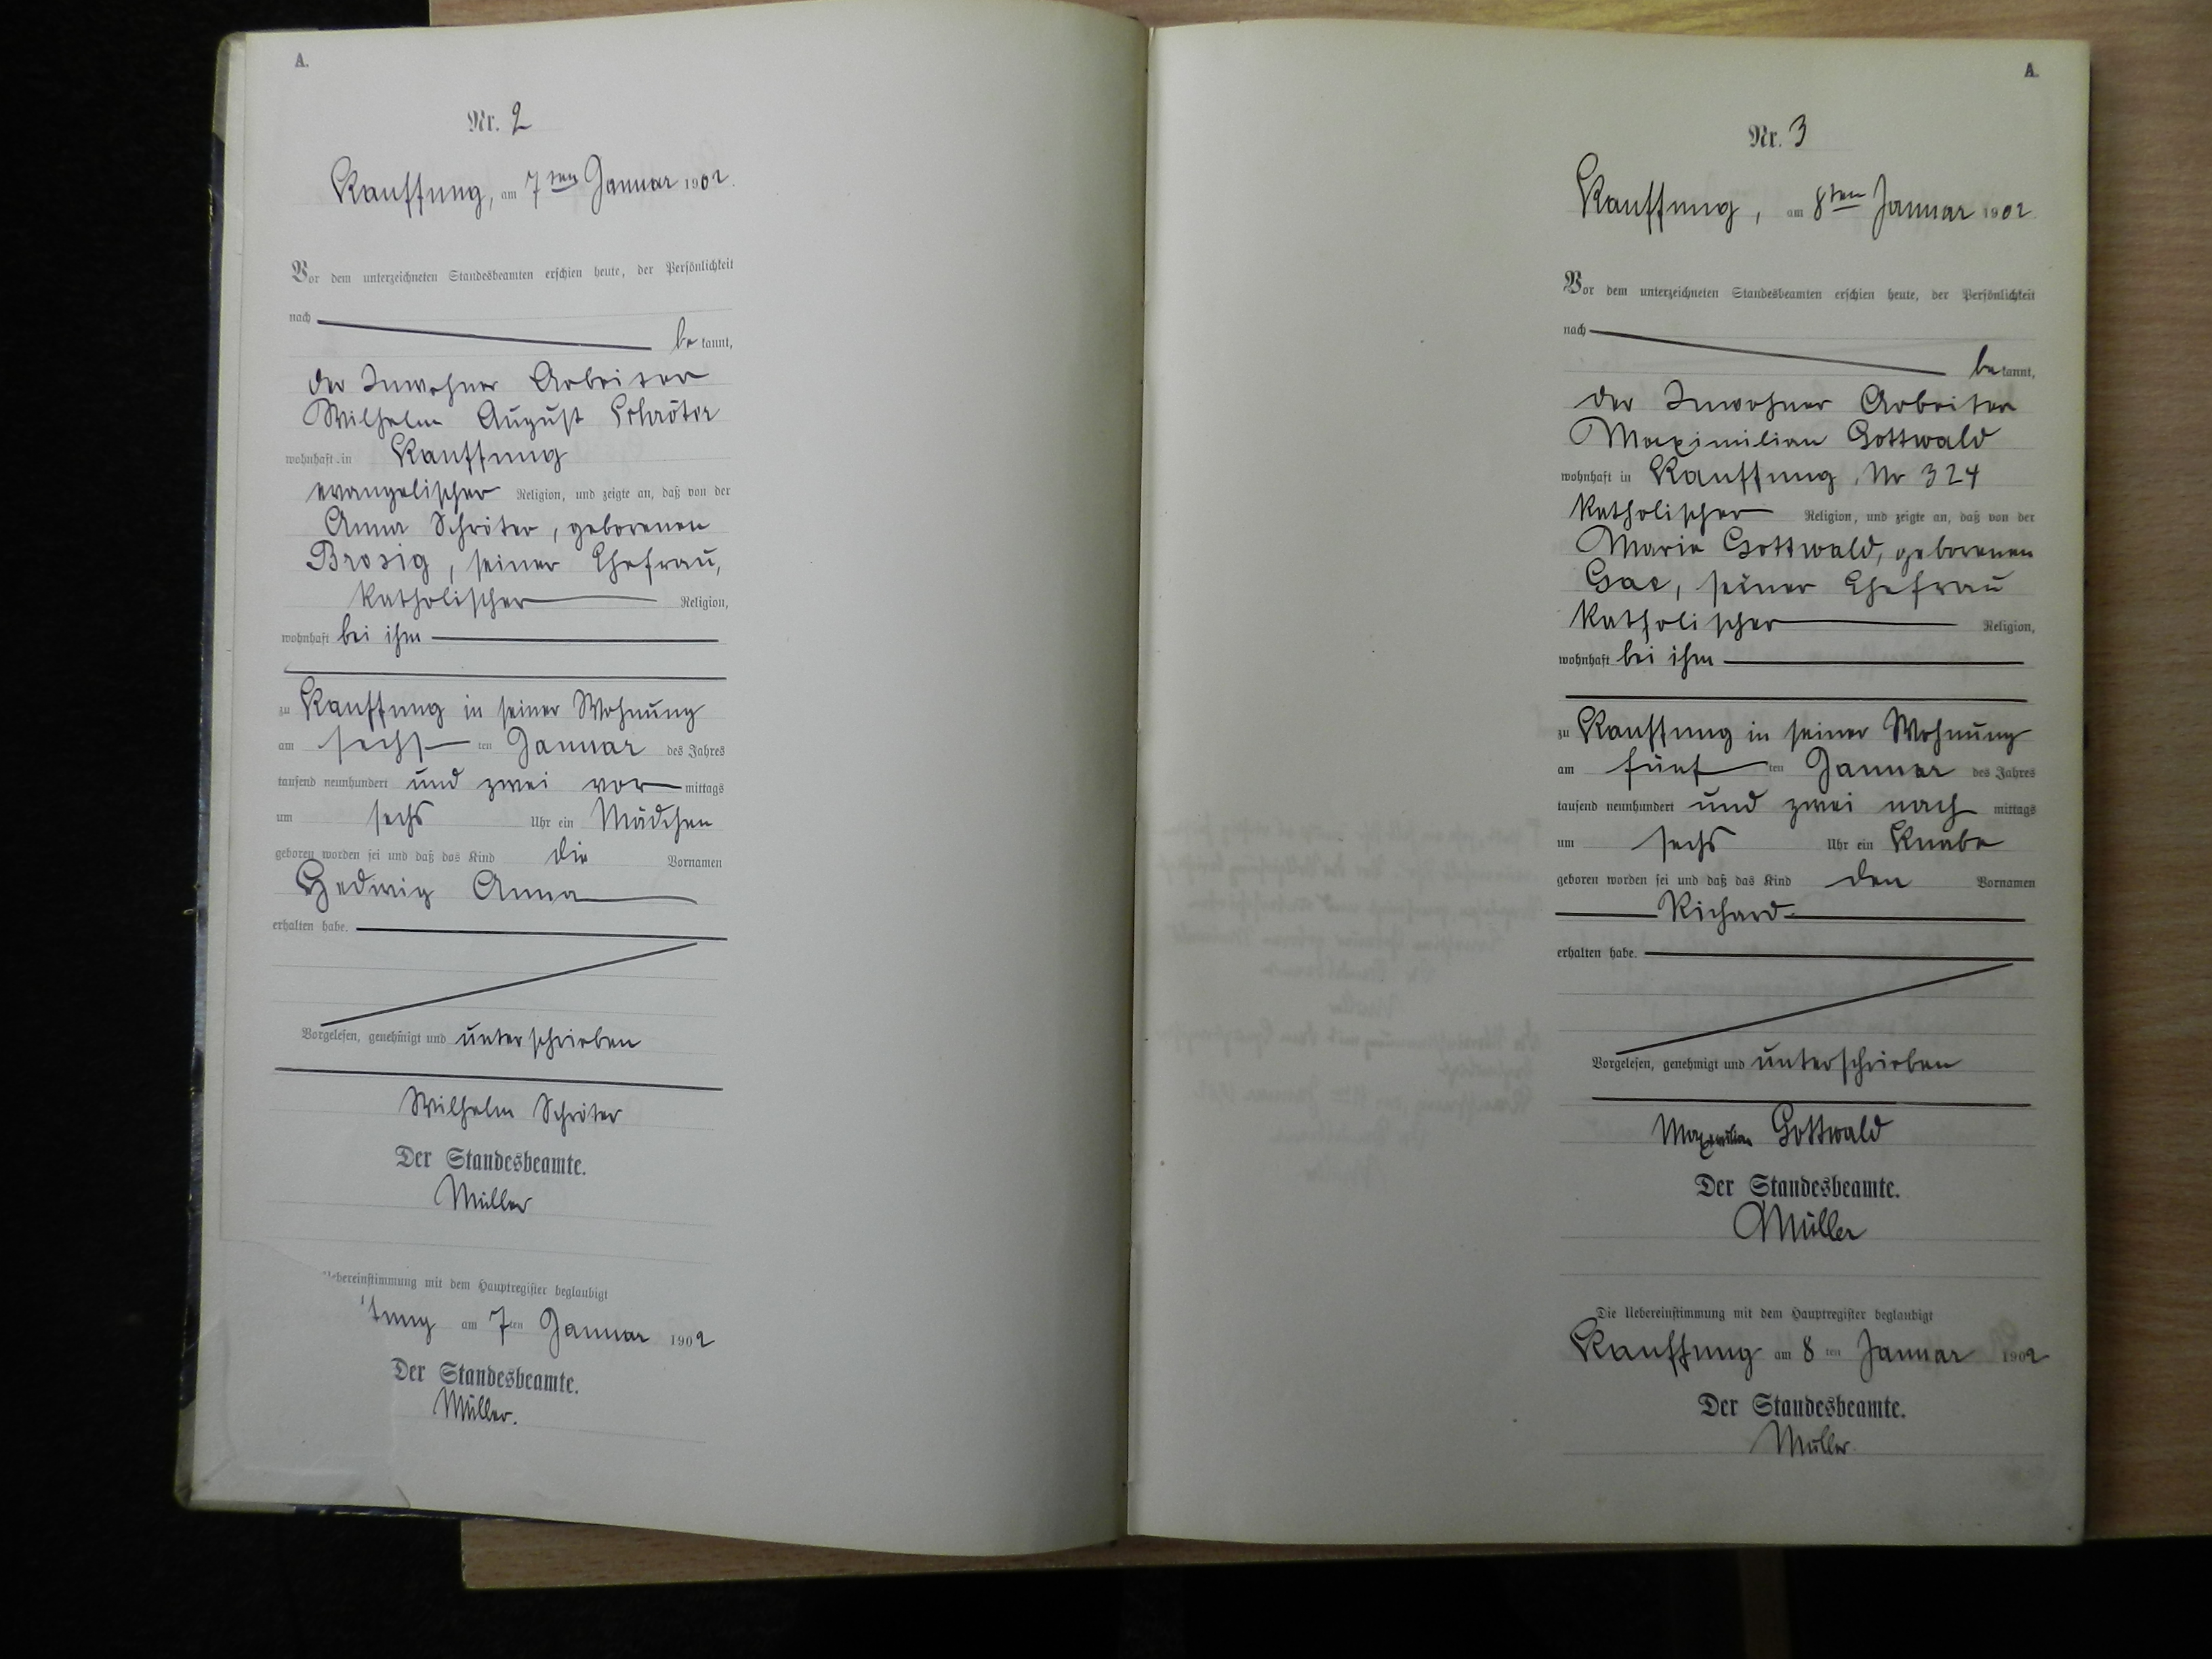 A.
Nr. 2
Kauffung, am 7ten Januar 1902.
Vor dem unterzeichneten Standesbeamten erschien heute, der Persönlichkeit
nach
be kannt,
der Inwohner Arbeiter
Wilhelm August Schröter
wohnhaft in Kauffung
evangelischer Religion, und zeigte an, daß von der
Anna Schröter, geborenen
Brosig, seiner Ehefrau,
katholischer Religion,
wohnhaft bei ihm
zu Kauffung in seiner Wohnung
am sechsten Januar des Jahres
tausend neunhundert und zwei vormittags
um sechs Uhr ein Mädchen
geboren worden sei und daß das Kind die Vornamen
Hedwig Anna
erhalten habe.
Vorgelesen, genehmigt und unterschrieben
Wilhelm Schröter
Der Standesbeamte.
Müller
Uebereinstimmung mit dem Hauptregister beglaubigt
am 7ten Januar 1902
Der Standesbeamte.
Müller.
A.
Nr. 3
Kauffung, am 8ten Januar 1902
Vor dem unterzeichneten Standesbeamten erschien heute, der Persönlichkeit
nach
be kannt,
der Inwohner Arbeiter
Maximilian Gottwald
wohnhaft in Kauffung, Nr 324
katholischer Religion, und zeigte an, daß von der
Marie Gottwald, geborenen
seiner Ehefrau
katholischer Religion,
wohnhaft bei ihm
zu Kauffung in seiner Wohnung
am fünften Januar des Jahres
tausend neunhundert und zwei nach mittags
um sechs Uhr ein Knabe
geboren worden sei und daß das Kind den Vornamen
Richard
erhalten habe.
Vorgelesen, genehmigt und unterschrieben
Maximilian Gottwald
Der Standesbeamte.
Müller
Die Uebereinstimmung mit dem Hauptregister beglaubigt
Kauffung am 8ten Januar 1902
Der Standesbeamte.
Müller.